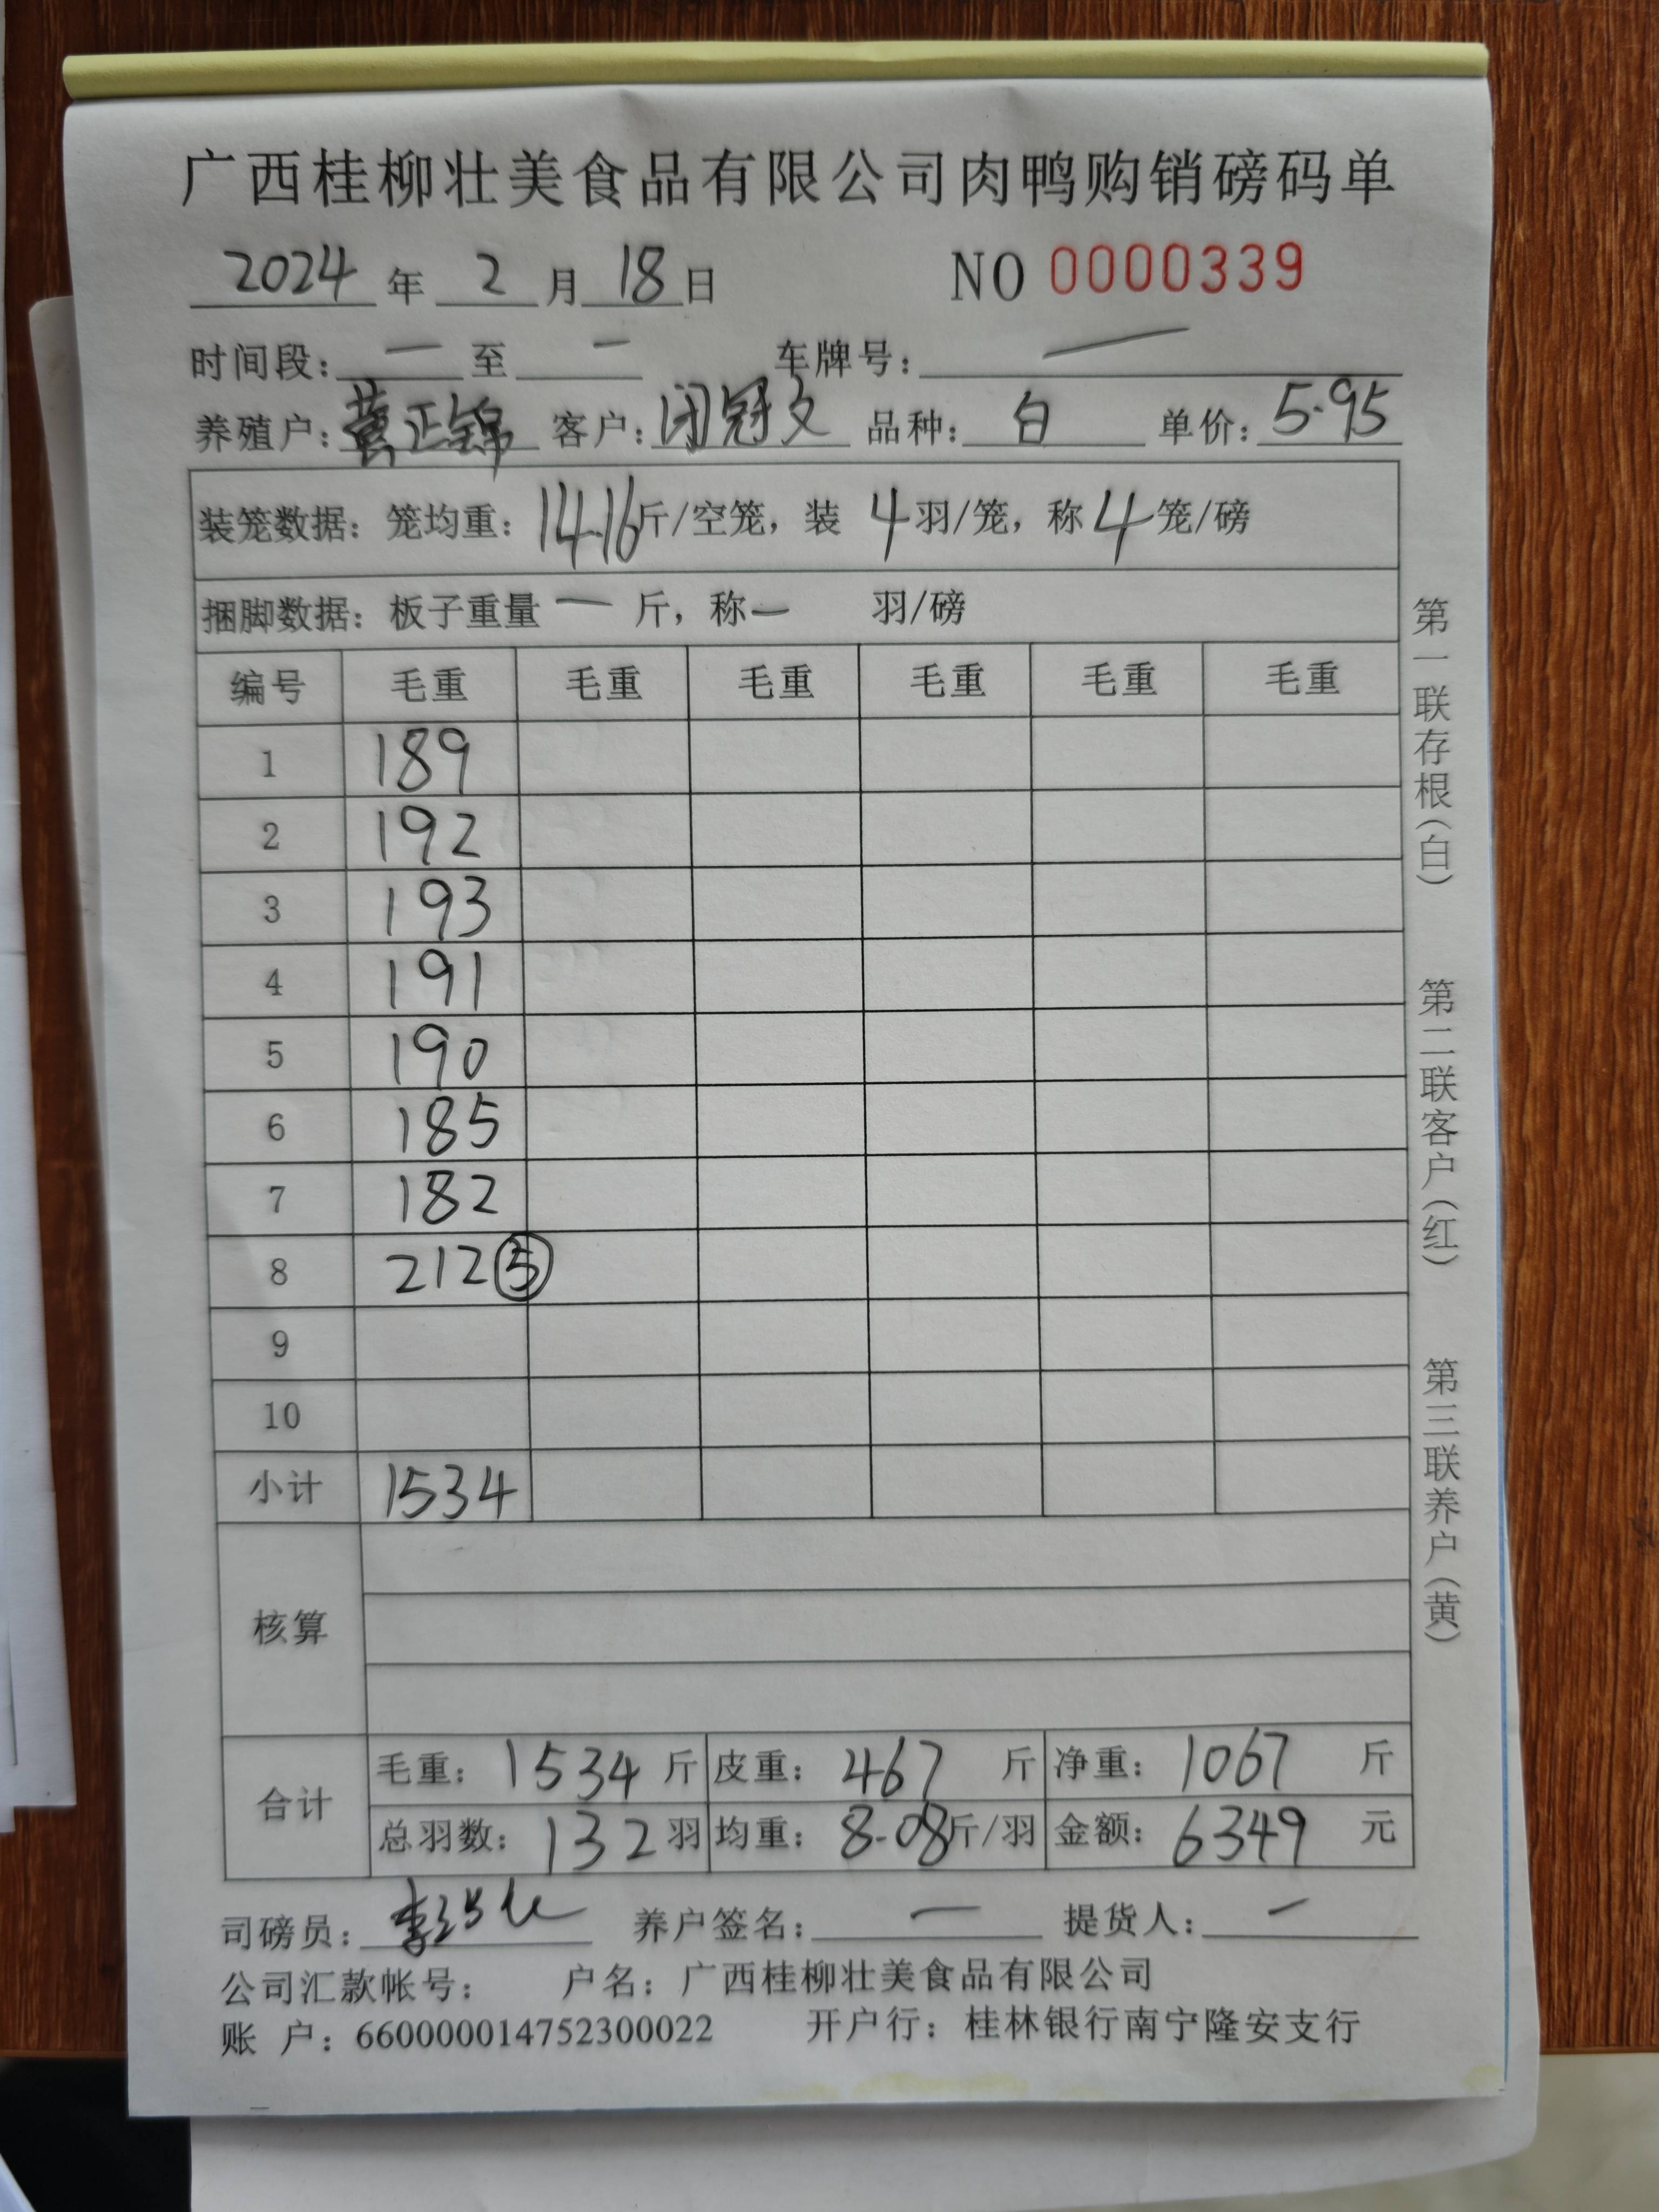 广西桂柳壮美食品有限公司肉鸭购销磅码单
2024 年 2 月 18 日 NO 0000339
时间段：一 至 一 车牌号：一
养殖户：黄正锦 客户：闭冠文 品种：白 单价：5.95
装笼数据：笼均重：14.16斤/空笼，装 4 羽/笼，称 4 笼/磅
捆脚数据：板子重量 一 斤，称一 羽/磅
编号 毛重 毛重 毛重 毛重 毛重 毛重
1 189
2 192
3 193
4 191
5 190
6 185
7 182
8 212⑤
9
10
小计 1534
核算
合计
毛重：1534 斤 皮重：467 斤 净重：1067 斤
总羽数：132 羽 均重：8.08斤/羽 金额：6349 元
司磅员：李 养户签名：一 提货人：一
公司汇款帐号： 户名：广西桂柳壮美食品有限公司
账 户：660000014752300022 开户行：桂林银行南宁隆安支行
第一联存根（白）
第二联客户（红）
第三联养户（黄）